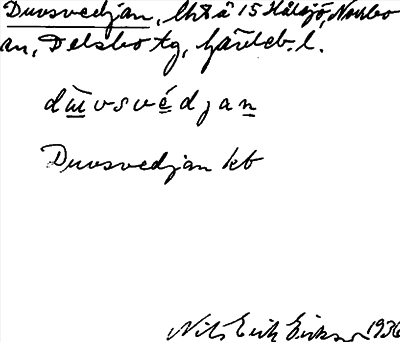 Duvsvedjan, lht å 15 Hålsjö, Norrbo
an, Delsbo tg, Gävleb. l.
dūvsvédjan
Duvsvedjan kb
Nils Erik Eriksson 1936